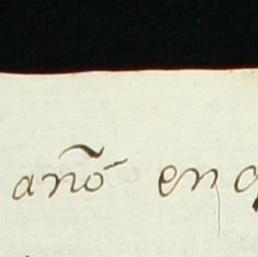 año en